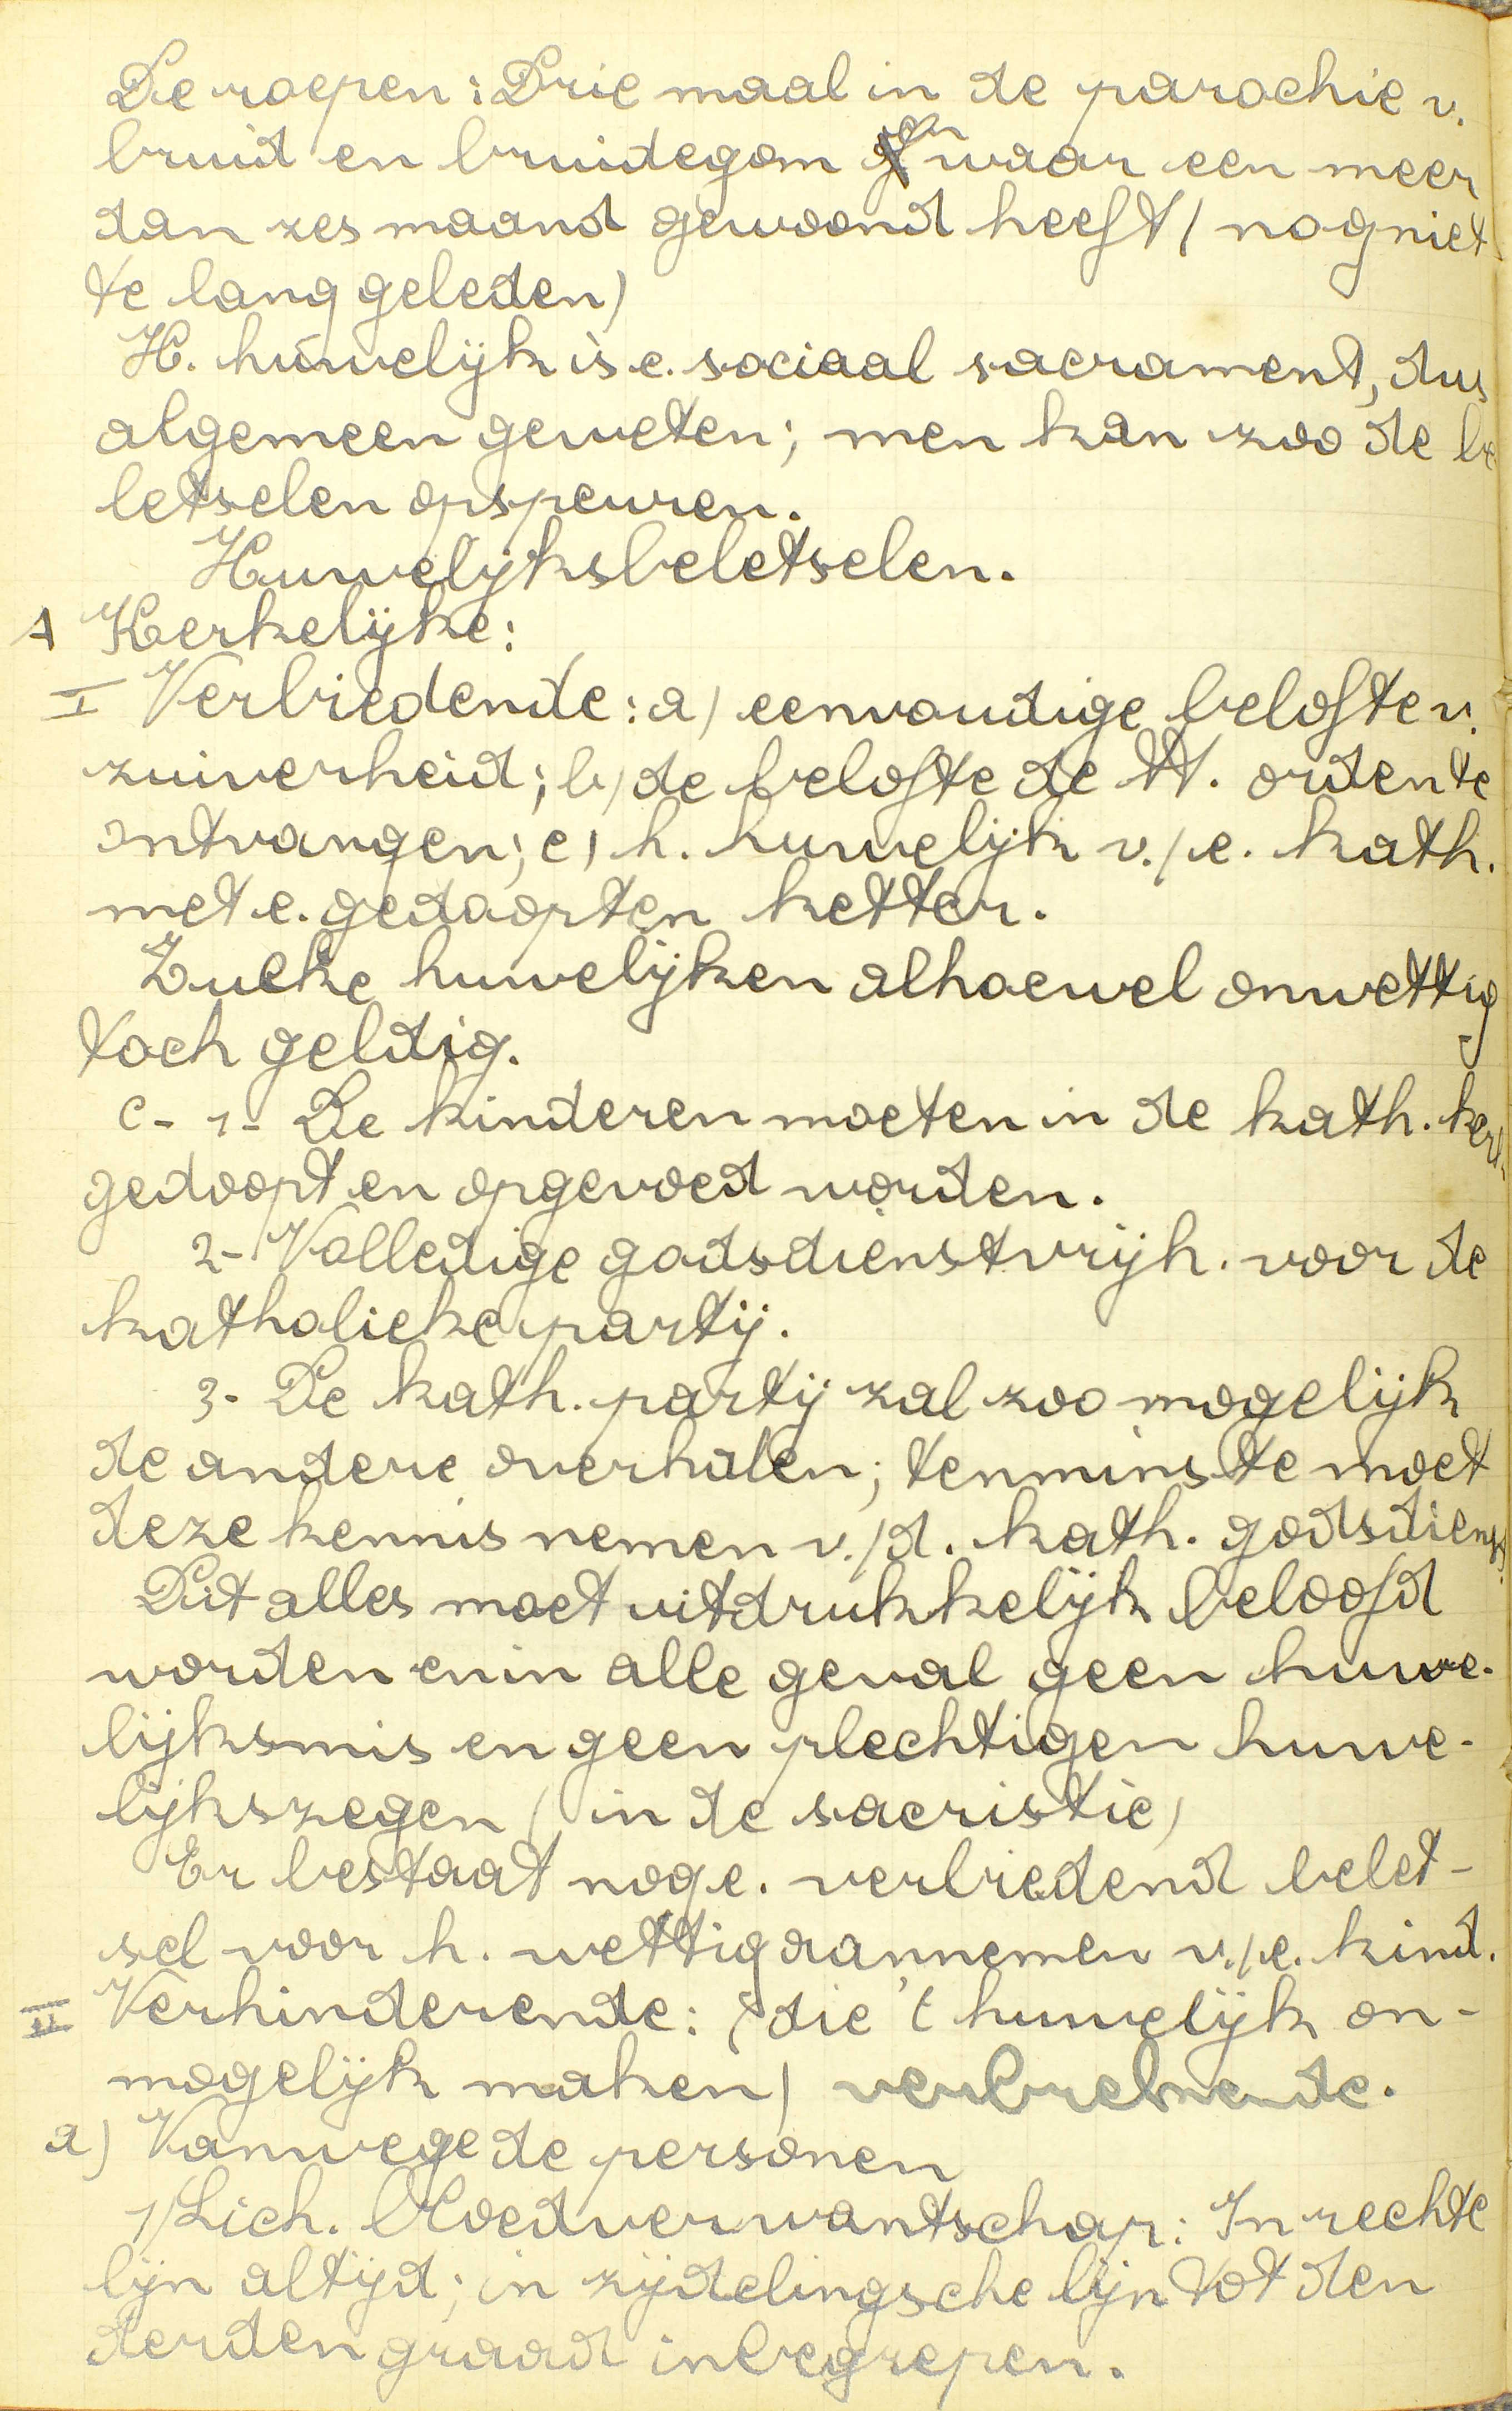 De roepen: Drie maal in de parochie v.
bruid en bruidegom en waar een meer
dan zes maand gewoond heeft (nog niet
te lang geleden)
H. huwelijk is e. sociaal sacrament, dus
algemeen geweten; men kan zoo de be
letselen opspeuren.
Huwelijksbeletselen.
A Kerkelijke:
I Verbiedende: a) eenvoudige belofte v.
zuiverheid; b) de belofte de H. orden te
ontvangen; c) h. huwelijk v./e. kath.
met e. gedoopten ketter.
Zulke huwelijken alhoewel onwettig
toch geldig.
c - 1 - De kinderen moeten in de kath. kerk
gedoopt en opgevoed worden.
2 - Volledige godsdienstvrijh. voor de
katholieke partij.
3 - De kath. partij zal zoo mogelijk
de andere overhalen; tenminste moet
deze kennis nemen v./d. kath. godsdienst.
Dit alles moet uitdrukkelijk beloofd
worden en in alle geval geen huwe-
lijksmis en geen plechtigen huwe-
lijkszegen (in de sacristie)
Er bestaat nog e. verbiedend belet-
sel voor h. wettig aannemen v./e. kind.
II Verhinderende: (die 't huwelijk on-
mogelijk maken)
a) Vanwege de personen
1) Lich. bloedverwantschap: In rechte
lijn altijd; in zijdelingsche lijn tot den
derden graad inbegrepen.